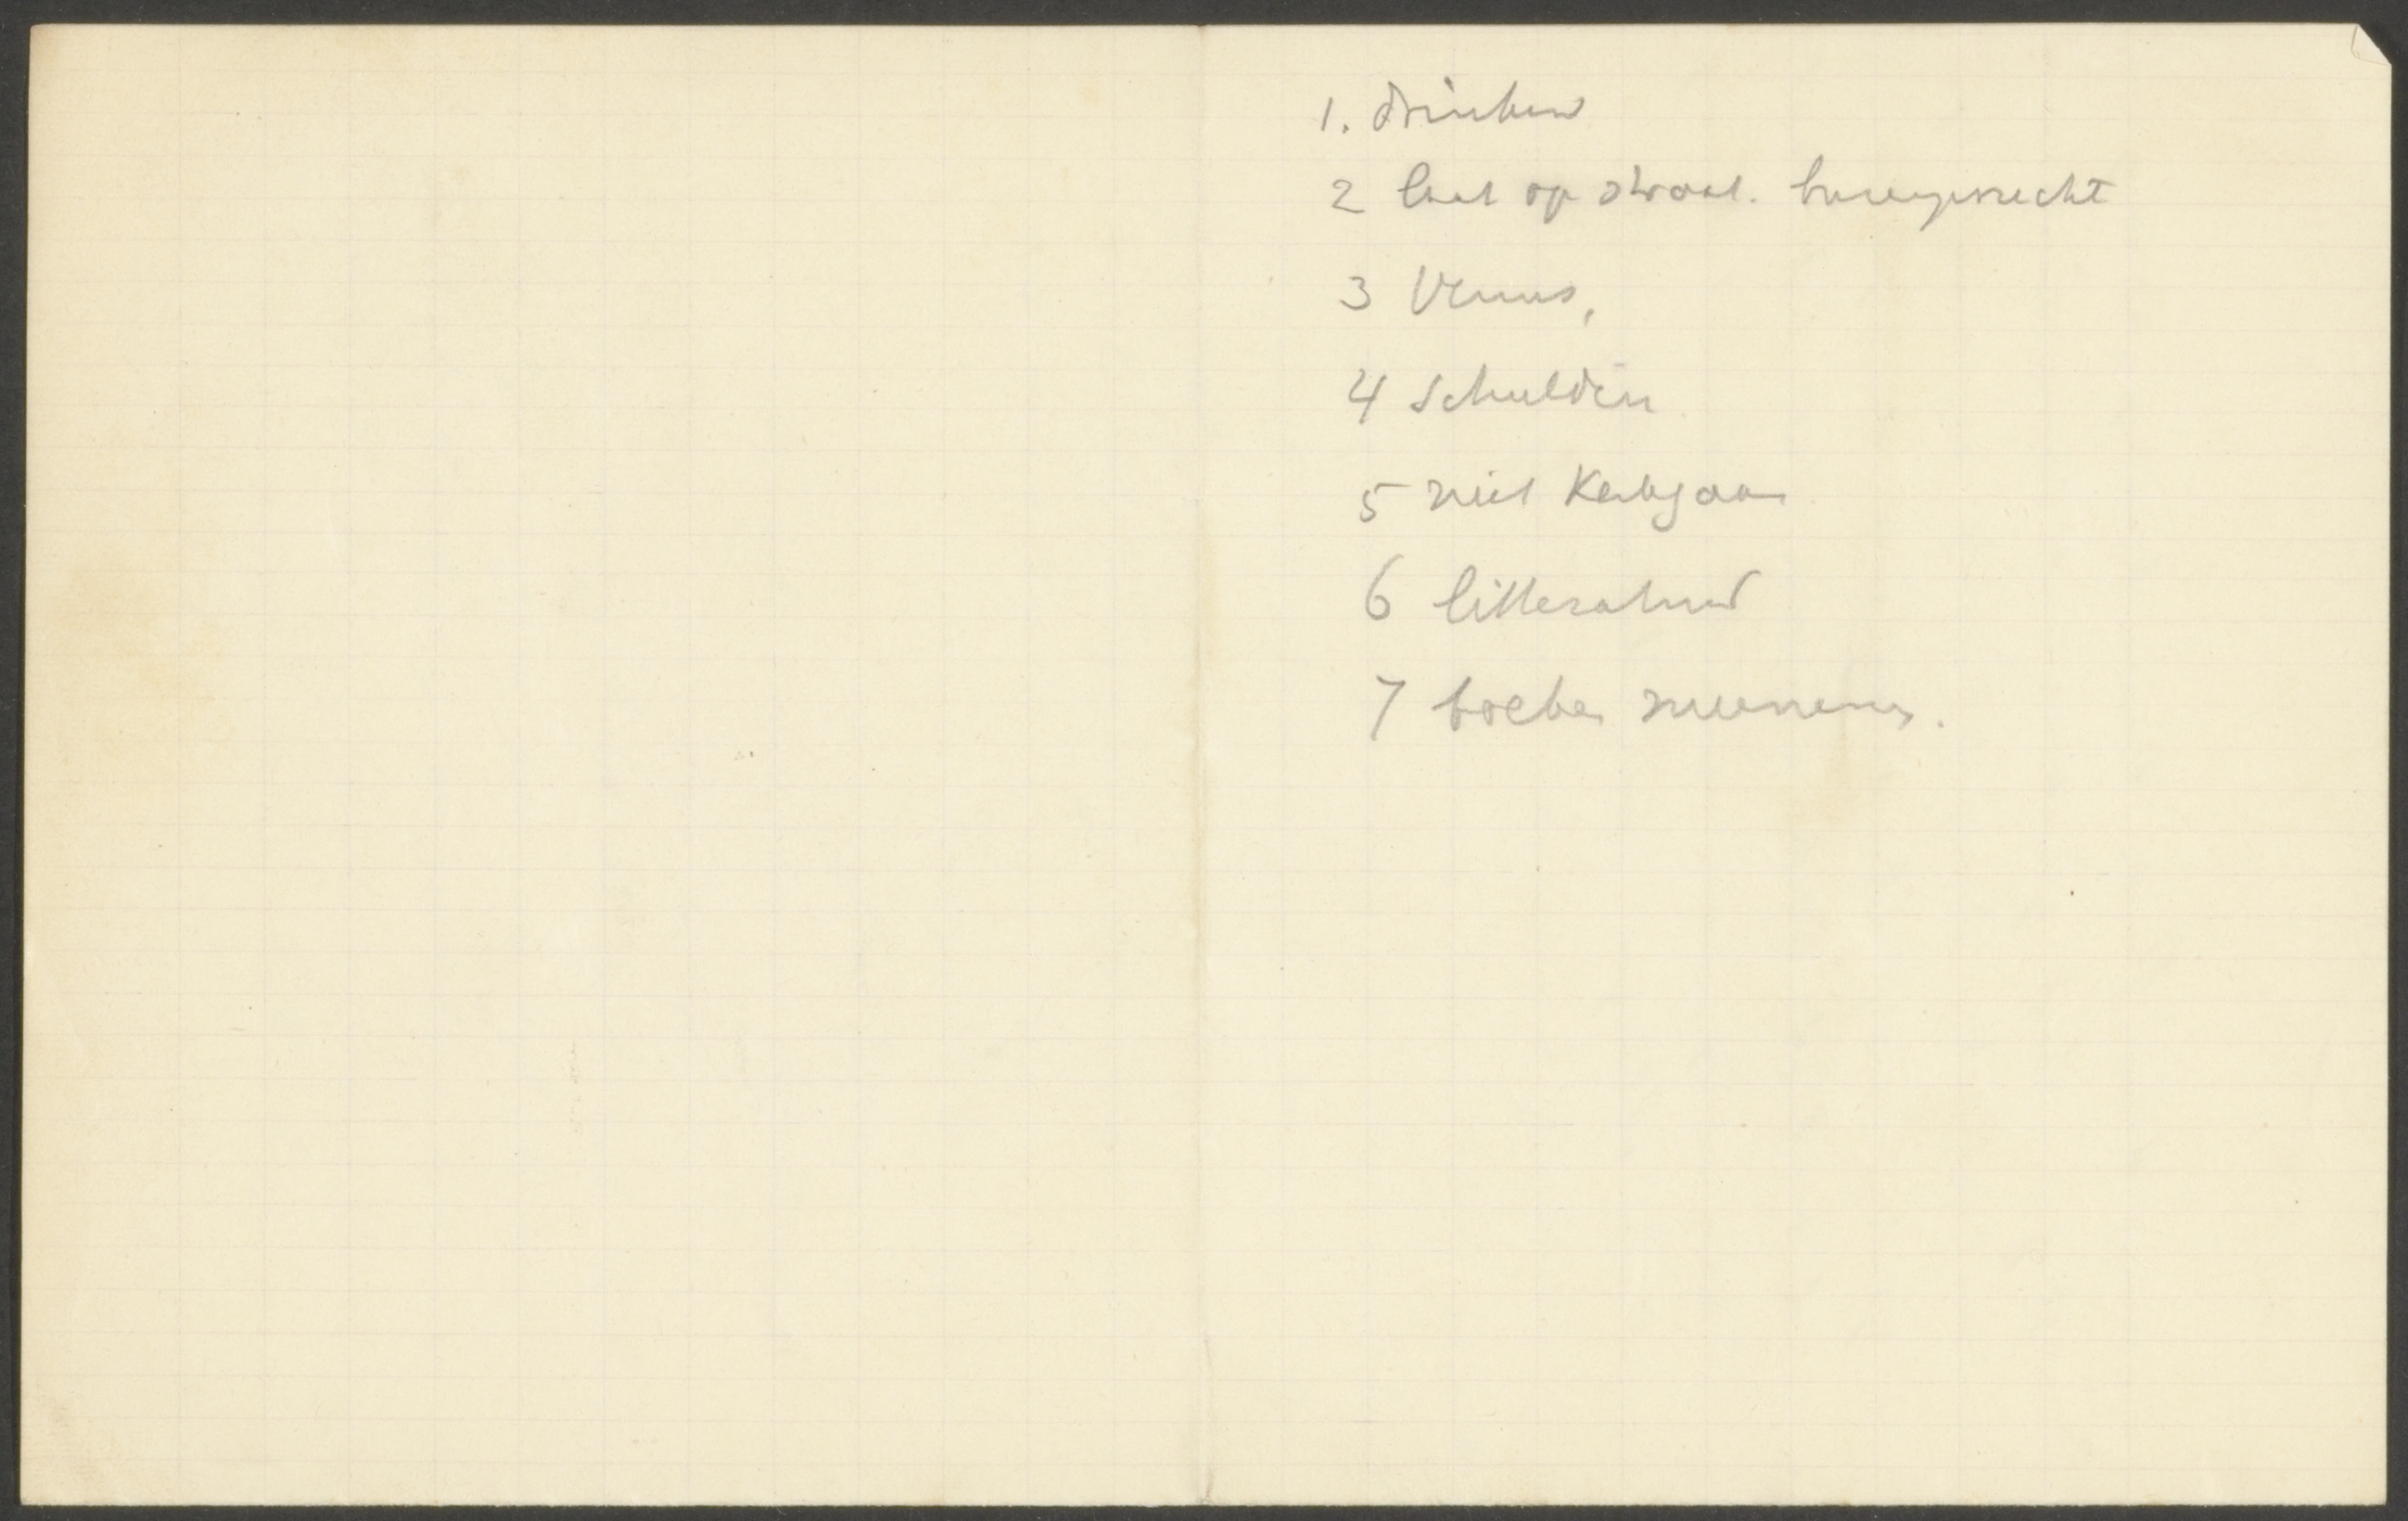 1. drinken
2 laat op straat. burengerucht
3 Venus,
4 schulden
5 niet Kerkgaan
6 litteratuur
7 boeken